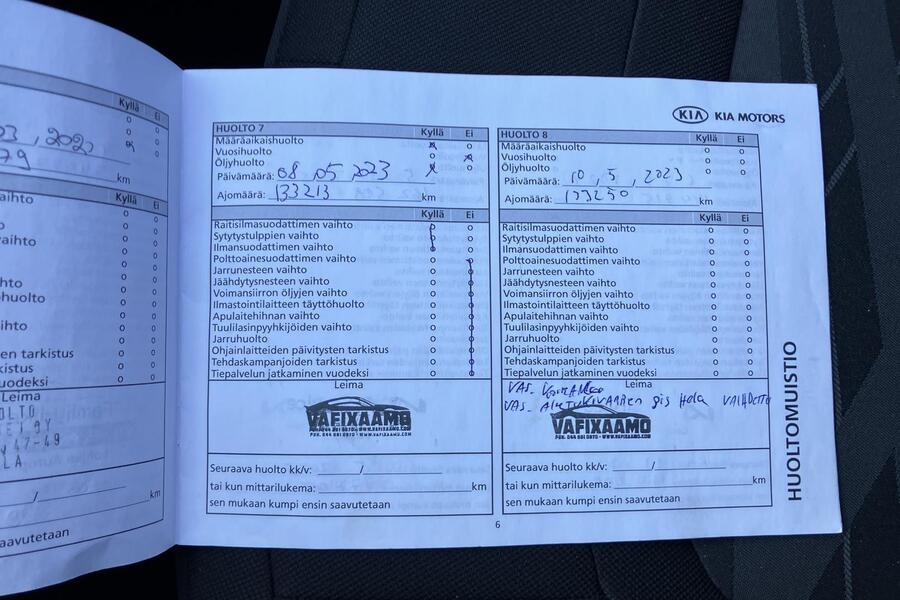 Kyllä Ei
km
Kyllä Ei
vaihto
huolto
ihto
en tarkistus
kistus
uodeksi
Leima
47-49
LA
/
km
aavutetaan
KIA KIA MOTORS
HUOLTO 7 Kyllä Ei
Määräaikaishuolto
Vuosihuolto
Öljyhuolto
Päivämäärä: 08 . 05 . 2023
Ajomäärä: 133213 km
Kyllä Ei
Raitisilmasuodattimen vaihto
Sytytystulppien vaihto
Ilmansuodattimen vaihto
Polttoainesuodattimen vaihto
Jarrunesteen vaihto
Jäähdytysnesteen vaihto
Voimansiirron öljyjen vaihto
Ilmastointilaitteen täyttöhuolto
Apulaitehihnan vaihto
Tuulilasinpyyhkijöiden vaihto
Jarruhuolto
Ohjainlaitteiden päivitysten tarkistus
Tehdaskampanjoiden tarkistus
Tiepalvelun jatkaminen vuodeksi
Leima
VAFIXAAMO
PUH. 044 981 0970 - WWW.VAFIXAAMO.COM
Seuraava huolto kk/v: /
tai kun mittarilukema: km
sen mukaan kumpi ensin saavutetaan
HUOLTO 8 Kyllä Ei
Määräaikaishuolto
Vuosihuolto
Öljyhuolto
Päivämäärä: 10 , 5 , 2023
Ajomäärä: 133250 km
Kyllä Ei
Raitisilmasuodattimen vaihto
Sytytystulppien vaihto
Ilmansuodattimen vaihto
Polttoainesuodattimen vaihto
Jarrunesteen vaihto
Jäähdytysnesteen vaihto
Voimansiirron öljyjen vaihto
Ilmastointilaitteen täyttöhuolto
Apulaitehihnan vaihto
Tuulilasinpyyhkijöiden vaihto
Jarruhuolto
Ohjainlaitteiden päivitysten tarkistus
Tehdaskampanjoiden tarkistus
Tiepalvelun jatkaminen vuodeksi
Leima
VAS.
VAS. VAIHDETTU
VAFIXAAMO
PUH. 044 981 0970 - WWW.VAFIXAAMO.COM
Seuraava huolto kk/v: /
tai kun mittarilukema: km
sen mukaan kumpi ensin saavutetaan
HUOLTOMUISTIO
6